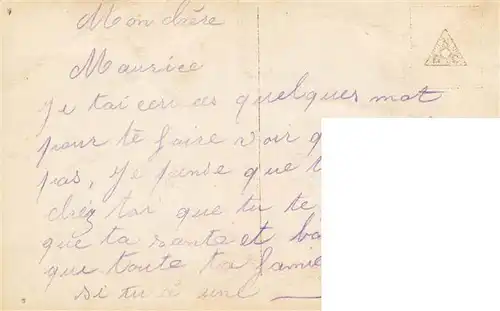 Mon chére
Maurice
Je tai cou ces quelques mot
pour te faire voir q
pas, Je panse que t
chéz toi que tu te
que ta sante et bo
qui toute ta famie
si tu à une